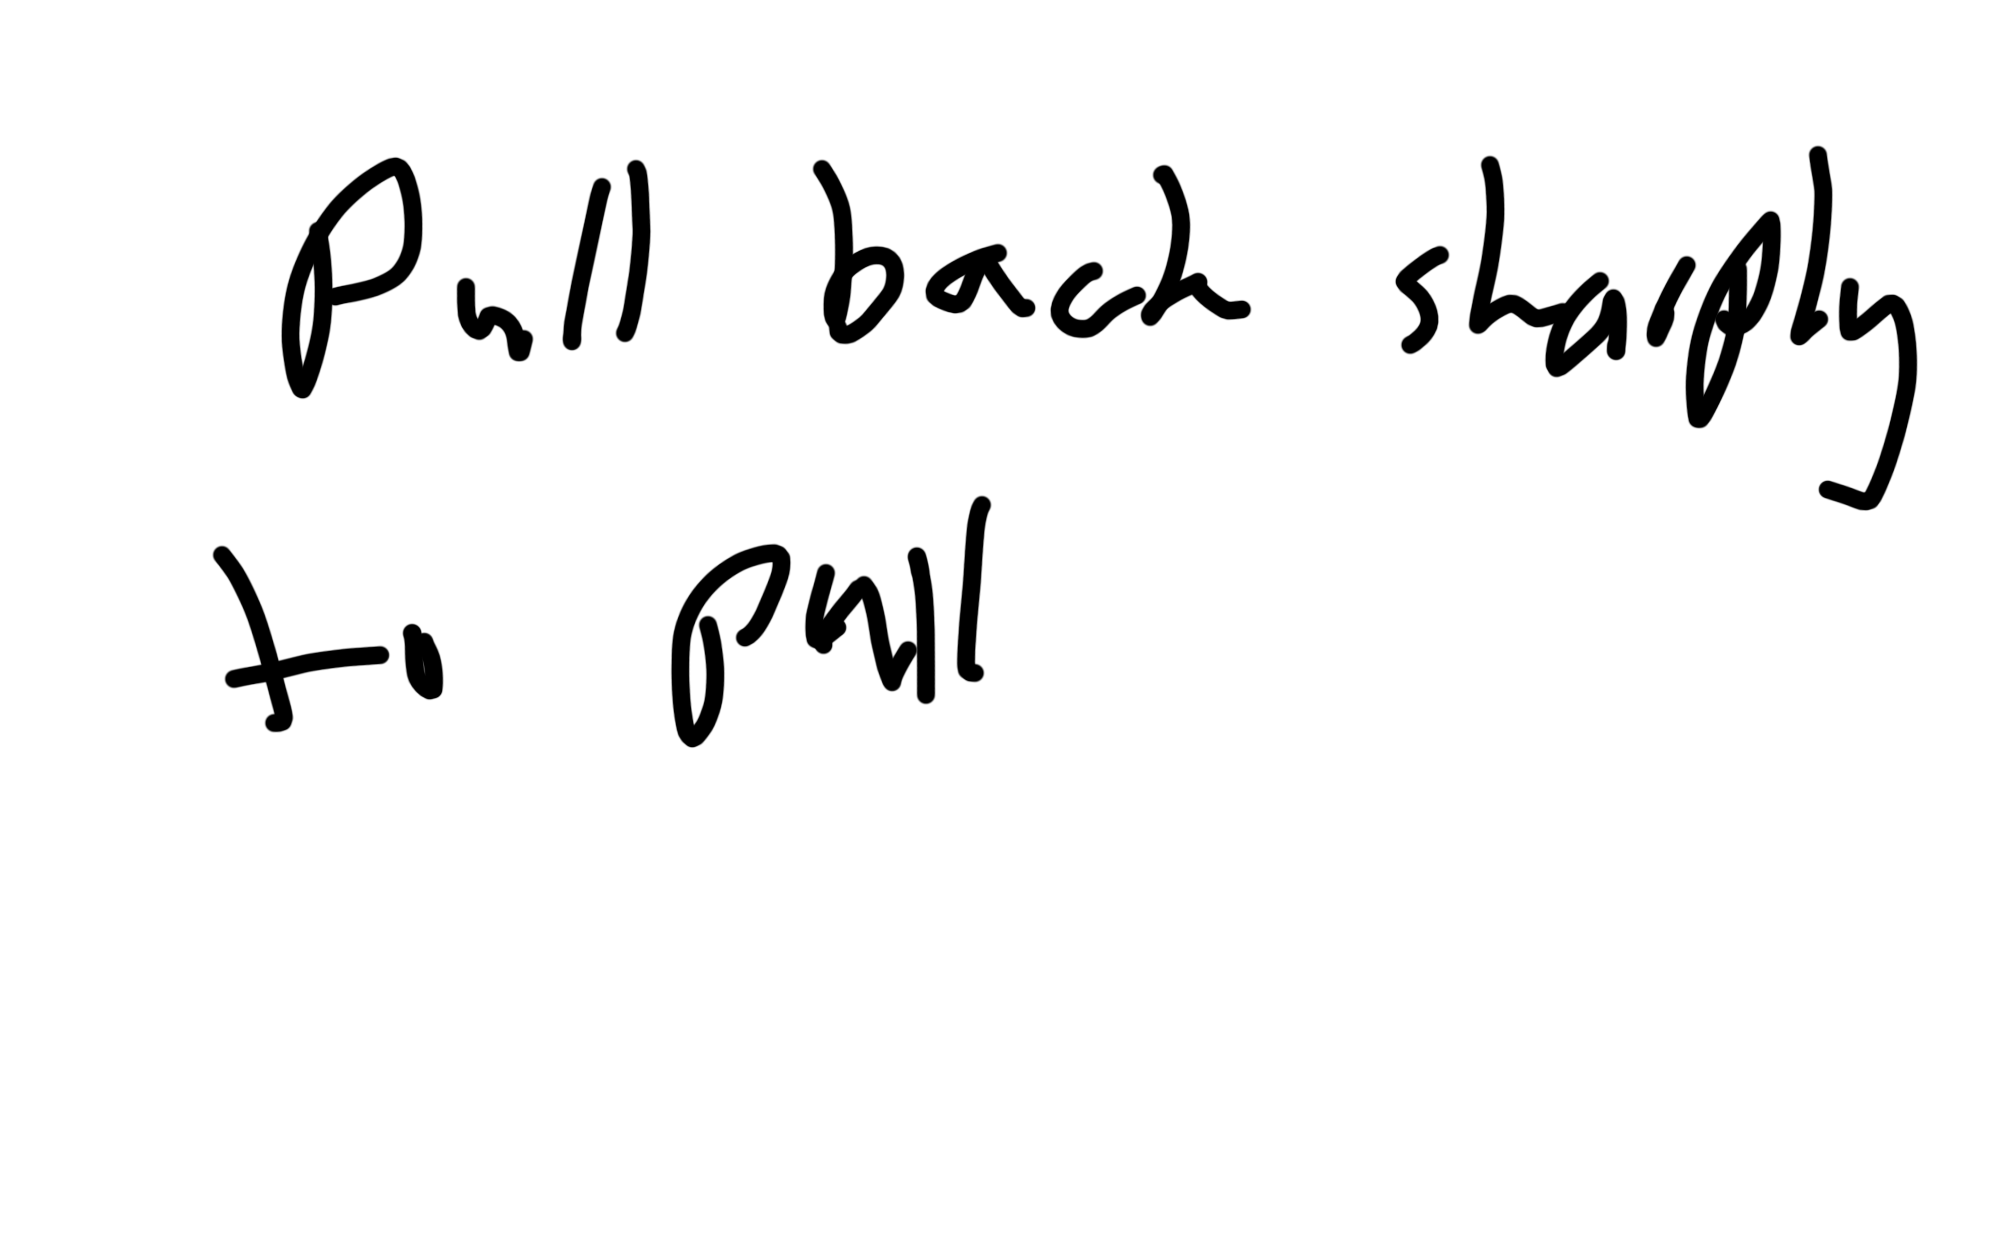 Pull back sharply
to pull